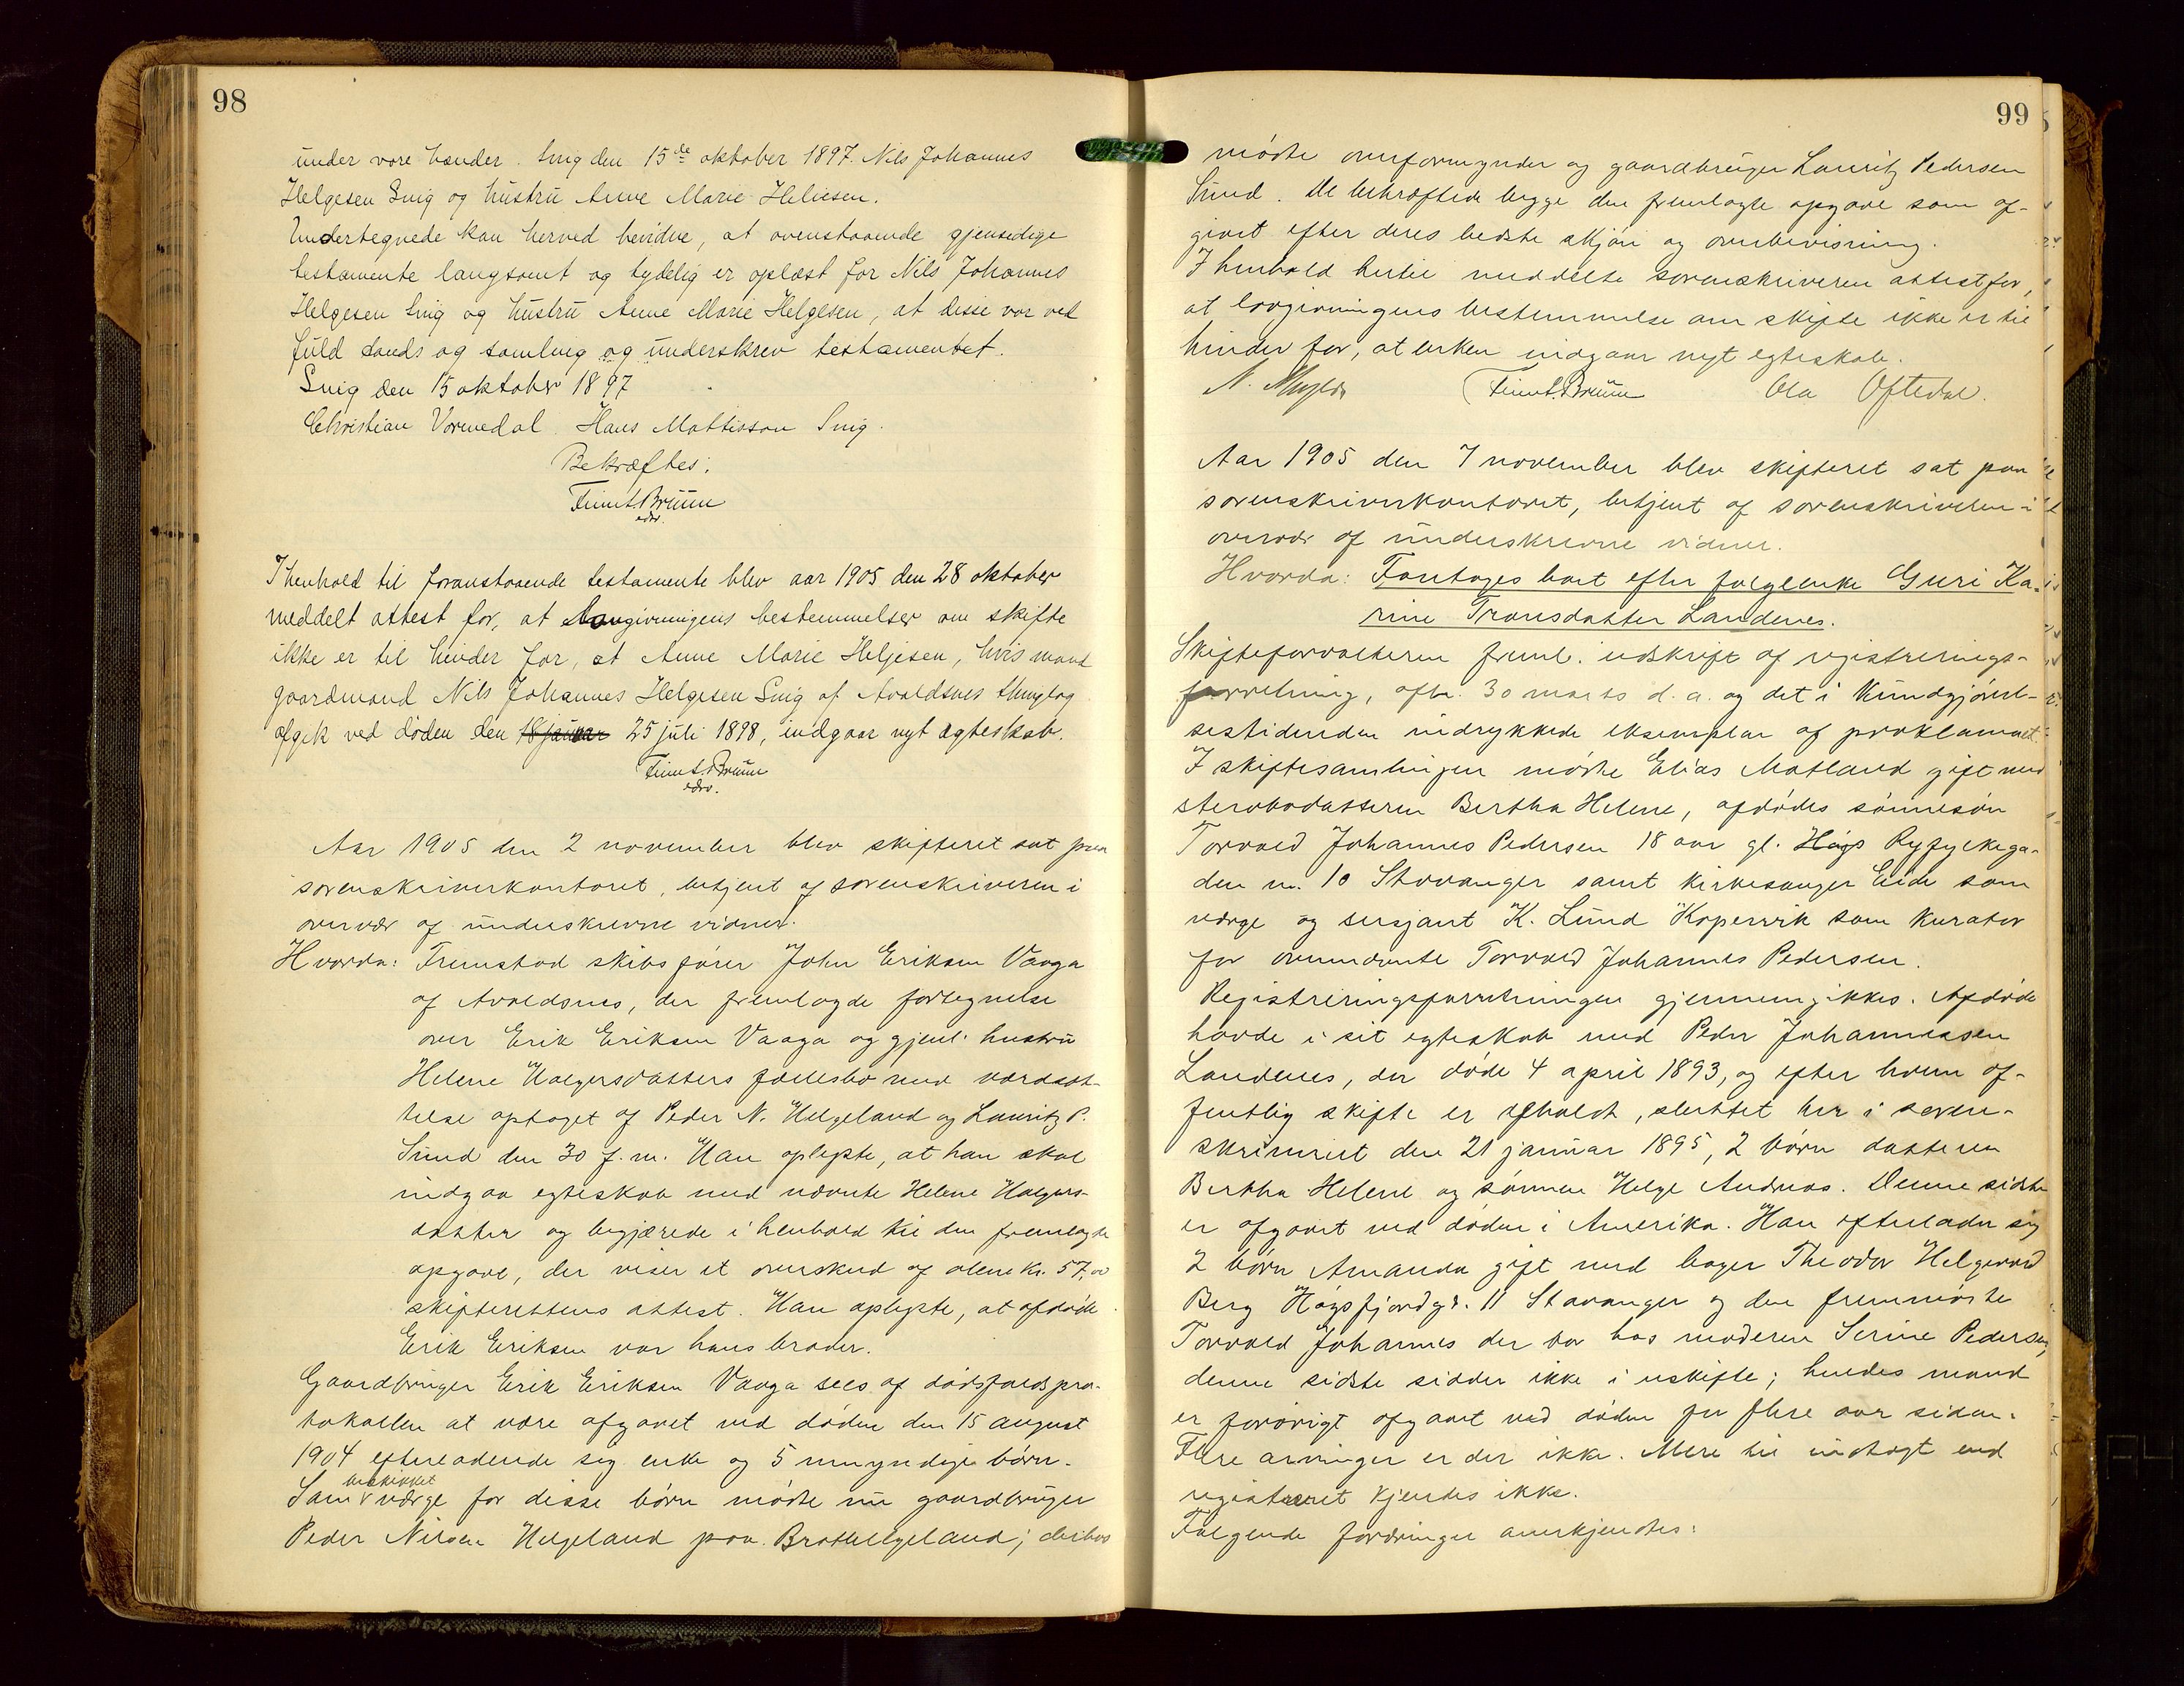 98
under vore hænder. Snig den 15de oktober 1897. Nils Johannes
Helgesen Snig og hustru Anne Marie Heliesen.
Undertegnede kan herved bevidne, at ovenstaaende gjensidige
testamente langsomt og tydelig er oplæst for Nils Johannes
Helgesen Snig og hustru Anne Marie Helgesen, at disse var ved
fuld sands og samling og underskrev testamentet.
Snig den 15 oktober 1897
Christian Vormedal Hans Mattisson Snig.
Bekræftes:
Finn L. Bruun
edsv.
I henhold til foranstaaende testamente blev aar 1905 den 28 oktober
meddelt attest for, at lovgivningens bestemmelser om skifte
ikke er til hinder for, at Anne Marie Heljesen, hvis mand
gaardmand Nils Johannes Helgesen Snig af Avaldsnes thinglag
afgik ved døden den 18 januar 25 juli 1898, indgaar nyt ægteskab.
Finn L. Bruun
edsv.
Aar 1905 den 2 november blev skifteret sat paa
sorenskriverkontoret, betjent af sorenskriveren i
overvær af underskrevne vidner.
Hvorda: Fremstod skibsfører John Eriksen Vaaga
af Avaldsnes, der fremlagde fortegnelse
over Erik Eriksen Vaaga og gjenl. hustru
Helene Holgersdatters fællesbo med værdsæt-
telse optaget af Peder N. Helgeland og Lauritz P.
Sund den 30 f.m. Han oplyste, at han skal
indgaa egteskab med nævnte Helene Holgers-
datter og begjærede i henhold til den fremlagte
opgave, der viser et overskud af alene kr. 57,00
skifterettens attest. Han oplyste, at afdøde
Erik Eriksen var hans broder.
Gaardbruger Erik Eriksen Vaaga sees af dødsfaldspro-
tokollen at være afgaaet ved døden den 15 august
1904 efterladende sig enke og 5 umyndige børn.
beskikket
Som værge for disse børn mødte nu gaardbruger
Peder Nilsen Helgeland paa Brathelgeland; derhos
99
mødte overformynder og gaardbruger Lauritz Pedersen
Sund. De bekræftede begge den fremlagte opgave som af-
givet efter deres bedste skjøn og overbevisning.
I henhold hertil meddelte sorenskriveren attest for,
at lovgivningens bestemmelse om skifte ikke er til
hinder for, at enken indgaar nyt egteskab.
Finn L. Bruun Ola Oftedal.
Aar 1905 den 7 november blev skifteret sat paa
sorenskriverkontoret, betjent af sorenskriveren i
overvær af underskrevne vidner.
Hvorda: Foretoges boet efter folgeenke Guri Ka-
rine Tronsdatter Landenes.
Skifteforvalteren freml. udskrift af registrerings-
forretning, afh. 30 marts d. a. og det i Kundgjørel-
sestidenden indrykkede eksemplar af proklamaet.
I skiftesamlingen mødte Elias Matland gift med
stervbodatteren Bertha Helene, afdødes sønnesøn
Torvald Johannes Pedersen 18 aar gl. Høgs Ryfylkega-
den nr. 10 Stavanger samt kirkesanger Eide som
værge og sersjant K. Lund Kopervik som kurator
for ovennævnte Torvald Johannes Pedersen.
Registreringsforretningen gjennemgikkes. Afdøde
havde i sit egteskab med Peder Johannessen
Landenes, der døde 4 april 1893, og efter hvem of-
fentlig skifte er afholdt, sluttet her i soren-
skriveriet den 21 januar 1895, 2 børn datteren
Bertha Helene og sønnen Helge Andreas. Denne sidste
er afgaaet ved døden i Amerika. Han efterlader sig
2 børn Amanda gift med bager Theodor Helgevold
Berg Høgsfjordgd. 11 Stavanger og den fremmødte
Torvald Johannes der bor hos moderen Serine Pedersen,
denne sidste sidder ikke i uskifte; hendes mand
er forøvrigt afgaaet ved døden for flere aar siden.
Flere arvinger er der ikke. Mere til indtægt end
registreret kjendes ikke.
Følgende fordringer anerkjendtes: